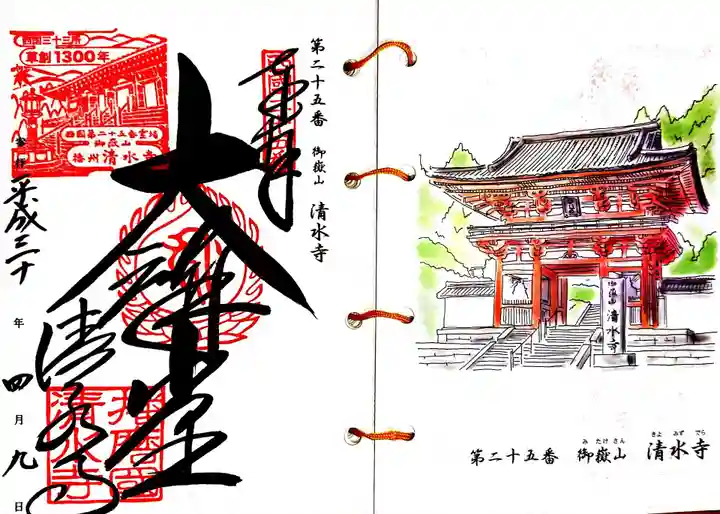 第二十五番 御嶽山 清水寺
奉拝
西国三十三所
草創1300年
西国第二十五番霊場
御嶽山
播州 清水寺
大講堂
清水寺
平成三十年四月九日
御嶽山
清水寺
み たけ さん きよ みず でら
第二十五番 御嶽山 清水寺